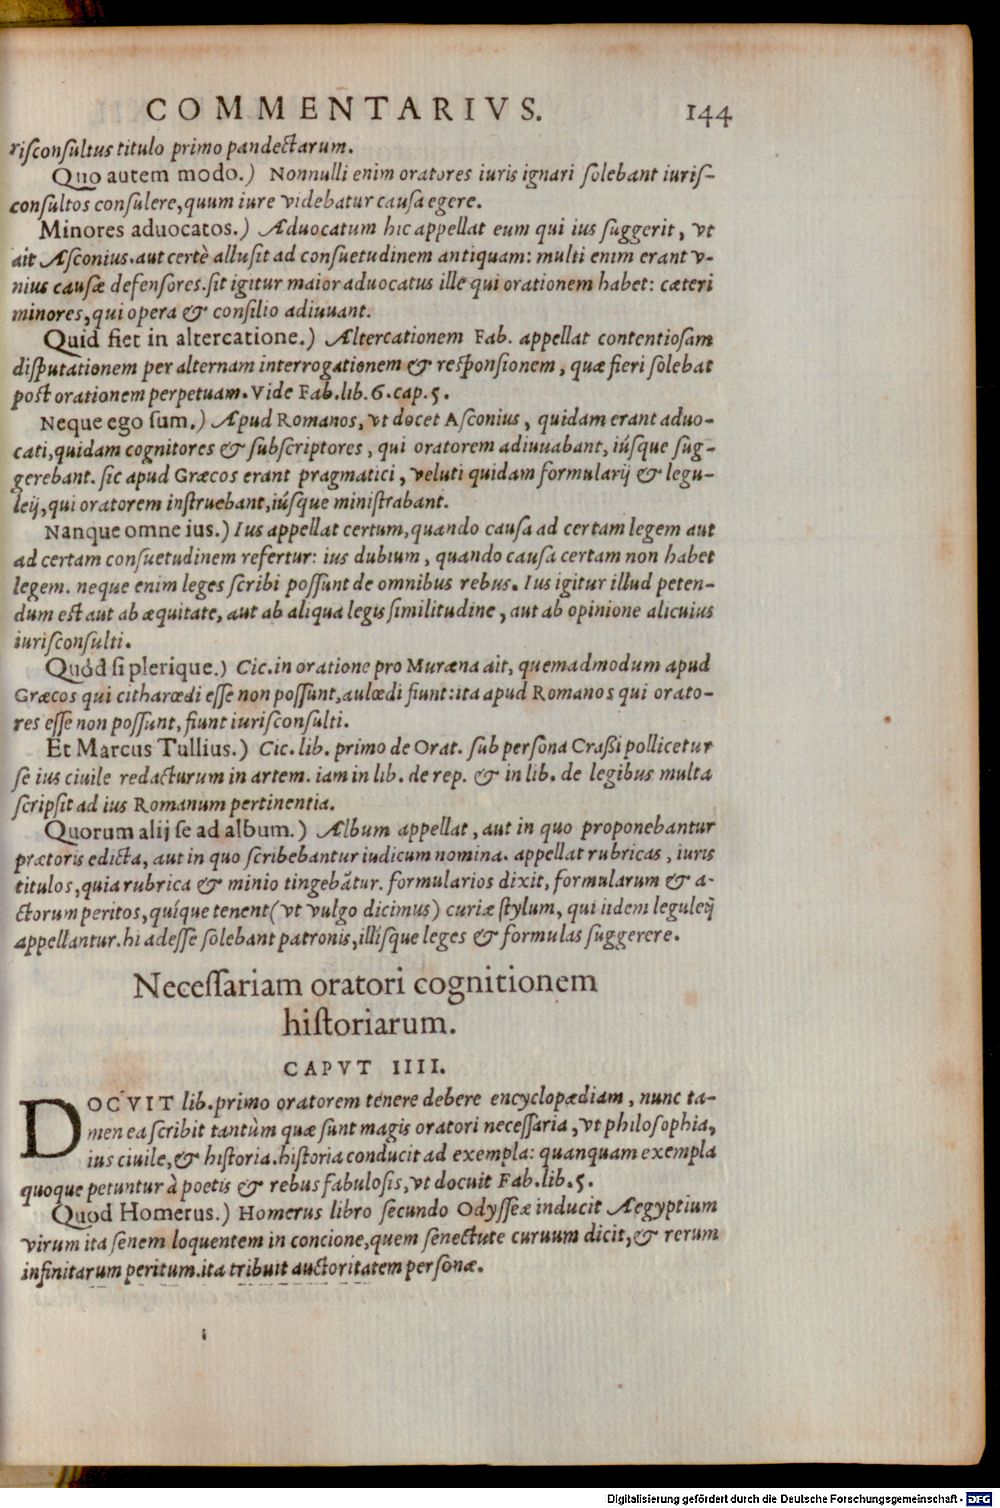 COMMENTARIVS. 144
risconsultus titulo primo pandectarum.
Quo autem modo.) Nonnulli enim oratores iuris ignari solebant iuris-
consultos consulere, quum iure videbatur causa egere.
Minores aduocatos.) Aduocatum hic appellat eum qui ius suggerit, vt
ait Asconius. aut certè allusit ad consuetudinem antiquam: multi enim erant v-
nius causæ defensores. sit igitur maior aduocatus ille qui orationem habet: cæteri
minores, qui opera & consilio adiuuant.
Quid fiet in altercatione.) Altercationem Fab. appellat contentiosam
disputationem per alternam interrogationem & responsionem, quæ fieri solebat
post orationem perpetuam. Vide Fab. lib. 6. cap. 5.
Neque ego sum.) Apud Romanos, vt docet Asconius, quidam erant aduo-
cati, quidam cognitores & subscriptores, qui oratorem adiuuabant, iúsque sug-
gerebant. sic apud Græcos erant pragmatici, veluti quidam formularij & legu-
leij, qui oratorem instruebant, iúsque ministrabant.
Nanque omne ius.) Ius appellat certum, quando causa ad certam legem aut
ad certam consuetudinem refertur: ius dubium, quando causa certam non habet
legem. neque enim leges scribi possunt de omnibus rebus. Ius igitur illud peten-
dum est aut ab æquitate, aut ab aliqua legis similitudine, aut ab opinione alicuius
iurisconsulti.
Quód si plerique.) Cic. in oratione pro Muræna ait, quemadmodum apud
Græcos qui citharœdi esse non possunt, aulœdi fiunt: ita apud Romanos qui orato-
res esse non possunt, fiunt iurisconsulti.
Et Marcus Tullius.) Cic. lib. primo de Orat. sub persona Crassi pollicetur
se ius ciuile redacturum in artem. iam in lib. de rep. & in lib. de legibus multa
scripsit ad ius Romanum pertinentia.
Quorum alij se ad album.) Album appellat, aut in quo proponebantur
prætoris edicta, aut in quo scribebantur iudicum nomina. appellat rubricas, iuris
titulos, quia rubrica & minio tingebātur. formularios dixit, formularum & a-
ctorum peritos, quíque tenent (vt vulgo dicimus) curiæ stylum, qui iidem leguleij
appellantur. hi adesse solebant patronis, illísque leges & formulas suggerere.
Necessariam oratori cognitionem
historiarum.
CAPVT IIII.
DOCVIT lib. primo oratorem tenere debere encyclopædiam, nunc ta-
men ea scribit tantùm quæ sunt magis oratori necessaria, vt philosophia,
ius ciuile, & historia. historia conducit ad exempla: quanquam exempla
quoque petuntur à poetis & rebus fabulosis, vt docuit Fab. lib. 5.
Quod Homerus.) Homerus libro secundo Odysseæ inducit Aegyptium
virum ita senem loquentem in concione, quem senectute curuum dicit, & rerum
infinitarum peritum. ita tribuit auctoritatem personæ.
Digitalisierung gefördert durch die Deutsche Forschungsgemeinschaft - DFG